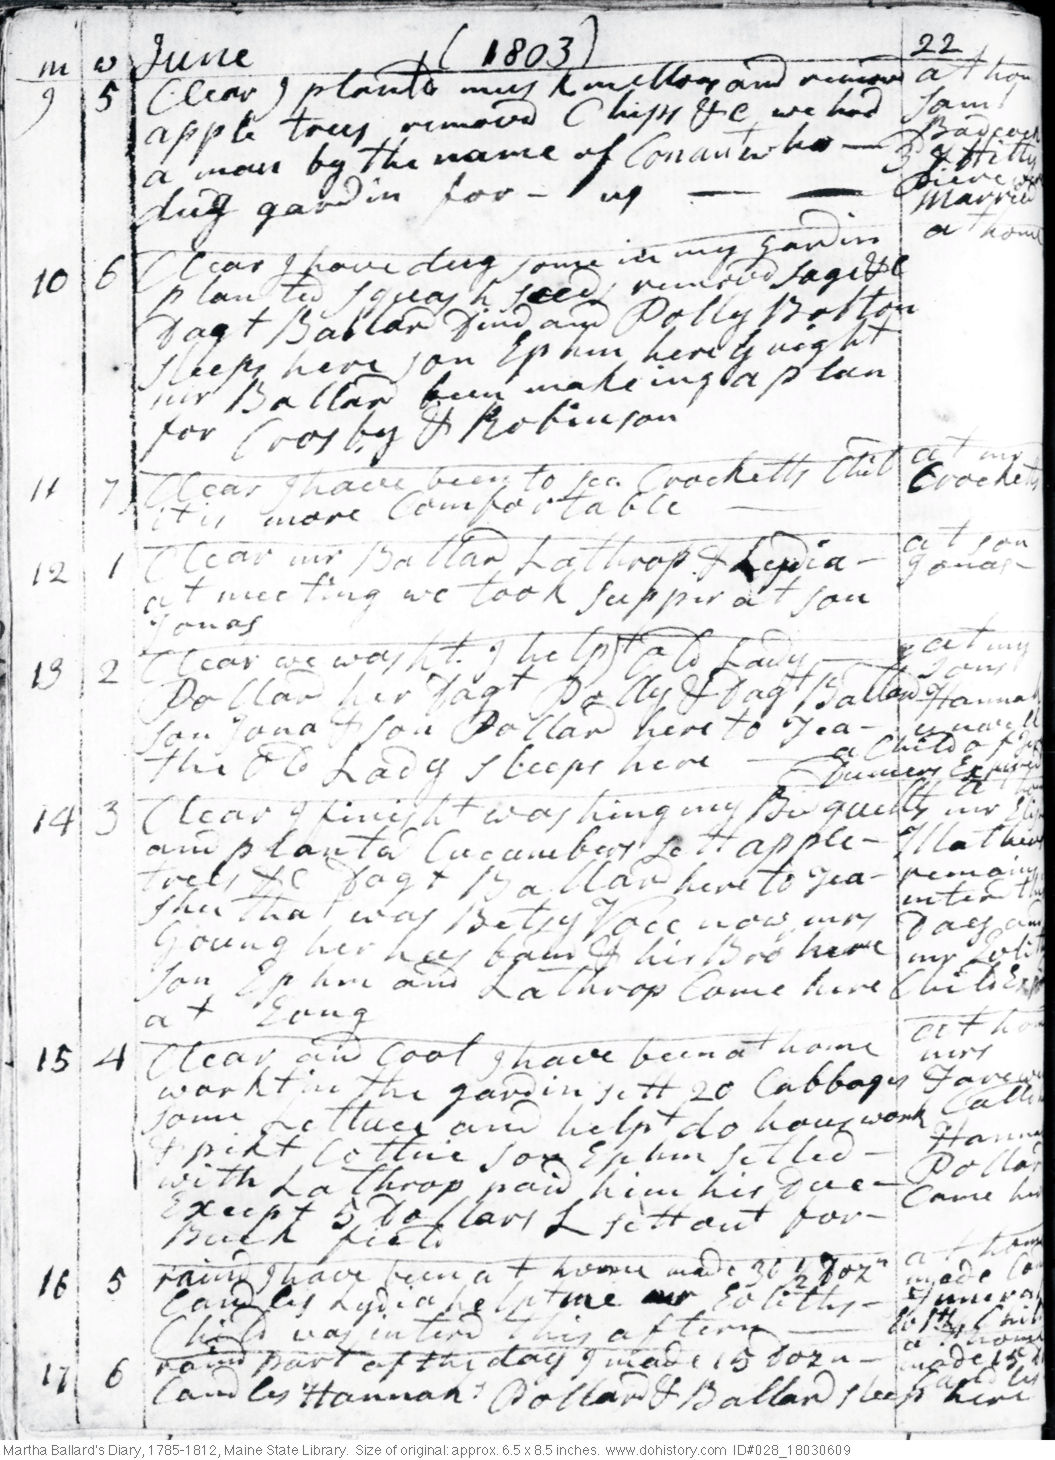 m w June (1803) 22
9 5 Clear I planted musk mellons and removd at home
apple trees removd Chips &C we had
a man by the name of Conant who —
dug gardin for — us — — Married
10 6 Clear I have dug some in my gardin at home
planted squash seeds removd sage &C
Dagt Ballard Dind and Polly Bolton
sleeps here son Ephm here y night
mr Ballard been makeing a plan
for Crosby & Robinson
11 7 Clear I have been to see Crocketts Chil at mr
it is more Comfortable — Crocketts
12 1 Clear mr Ballard Lathrop & Lydia – at son
at meeting we took supper at son Jonas –
Jonas
13 2 Clear we washt. I helpt old Lady — at my
Pollard her Dagt Polly & Dagt Ballard Hannah
son Jona & son Pollard here to Tea –
the old Lady sleeps here — a Child of
14 3 Clear I finisht washing my Bed quilts mr
and planted Cucumbers sett apple –
trees &C Dagt Ballard here to Tea – remains
shee that was Betsy Voce now mrs interd
young her husband & his Bro here
son Ephm and Lathrop Come here Child
at Evng
15 4 Clear and Cool I have been at home at home
workt in the gardin sett 20 Cabbages mrs
some Lettuce and helpt do hous work
& pikt Cottne son Ephm setled –
with Lathrop paid him his Due – Pollard
Except 5 Dollars L sett out for – Came here
Buck field
16 5 raind I have been at home made 31 1/2 Dozn at home
Candles Lydia helpt me mr — made
Child was interd this aftern — Child
17 6 raind part of the day I made 15 Dozn – at home
Candles Hannah Pollard & Ballard sleep here made 15
Martha Ballard's Diary, 1785-1812, Maine State Library. Size of original: approx. 6.5 x 8.5 inches. www.dohistory.com ID#028_18030609